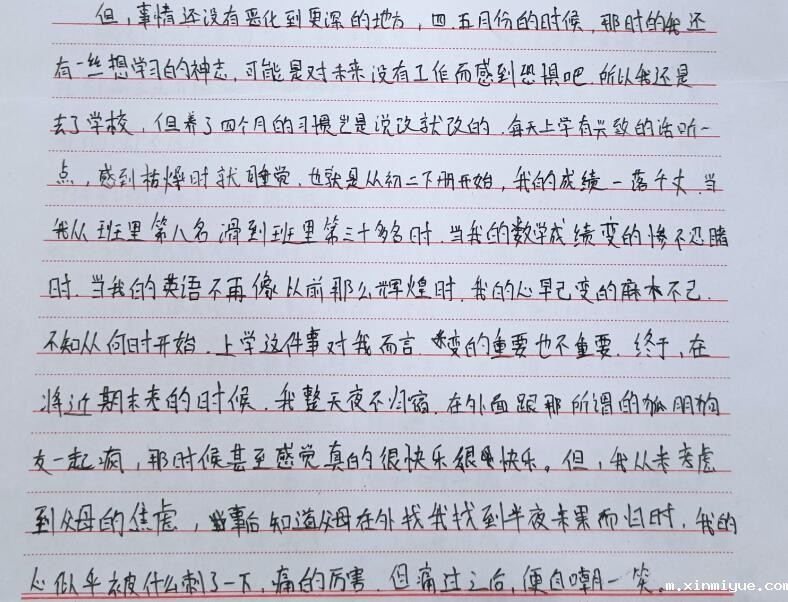 但，事情还没有恶化到更深的地方，四.五月份的时候，那时的我还
有一丝想学习的神志，可能是对未来没有工作而感到恐惧吧.所以我还是
去了学校，但养了四个月的习惯岂是说改就改的.每天上学有兴致的话听一
点，感到枯燥时就睡觉.也就是从初二下册开始，我的成绩一落千丈.当
我从班里第八名滑到班里第三十多名时.当我的数学成绩变的惨不忍睹
时.当我的英语不再像从前那么辉煌时.我的心早已变的麻木不已.
不知从何时开始.上学这件事对我而言.变的重要也不重要.终于，在
将近期末考的时候.我整天夜不归宿.在外面跟那所谓的狐朋狗
友一起疯，那时候甚至感觉真的很快乐很快乐。但，我从未考虑
到父母的焦虑，当事后知道父母在外找我找到半夜未果而归时.我的
心似乎被什么刺了一下，痛的厉害.但痛过之后，便自嘲一笑。
m.xinmiyue.com